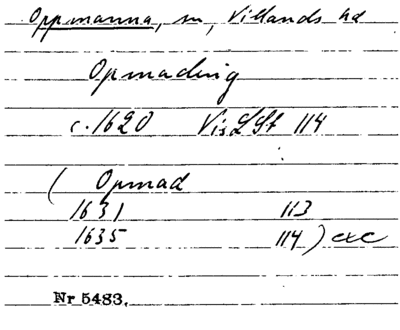 Oppmanna, sn, Villands hd
Opmading
c. 1620 VisLSt 114
( Opmad
1631 113
1635 114 ) etc
Nr 5483.